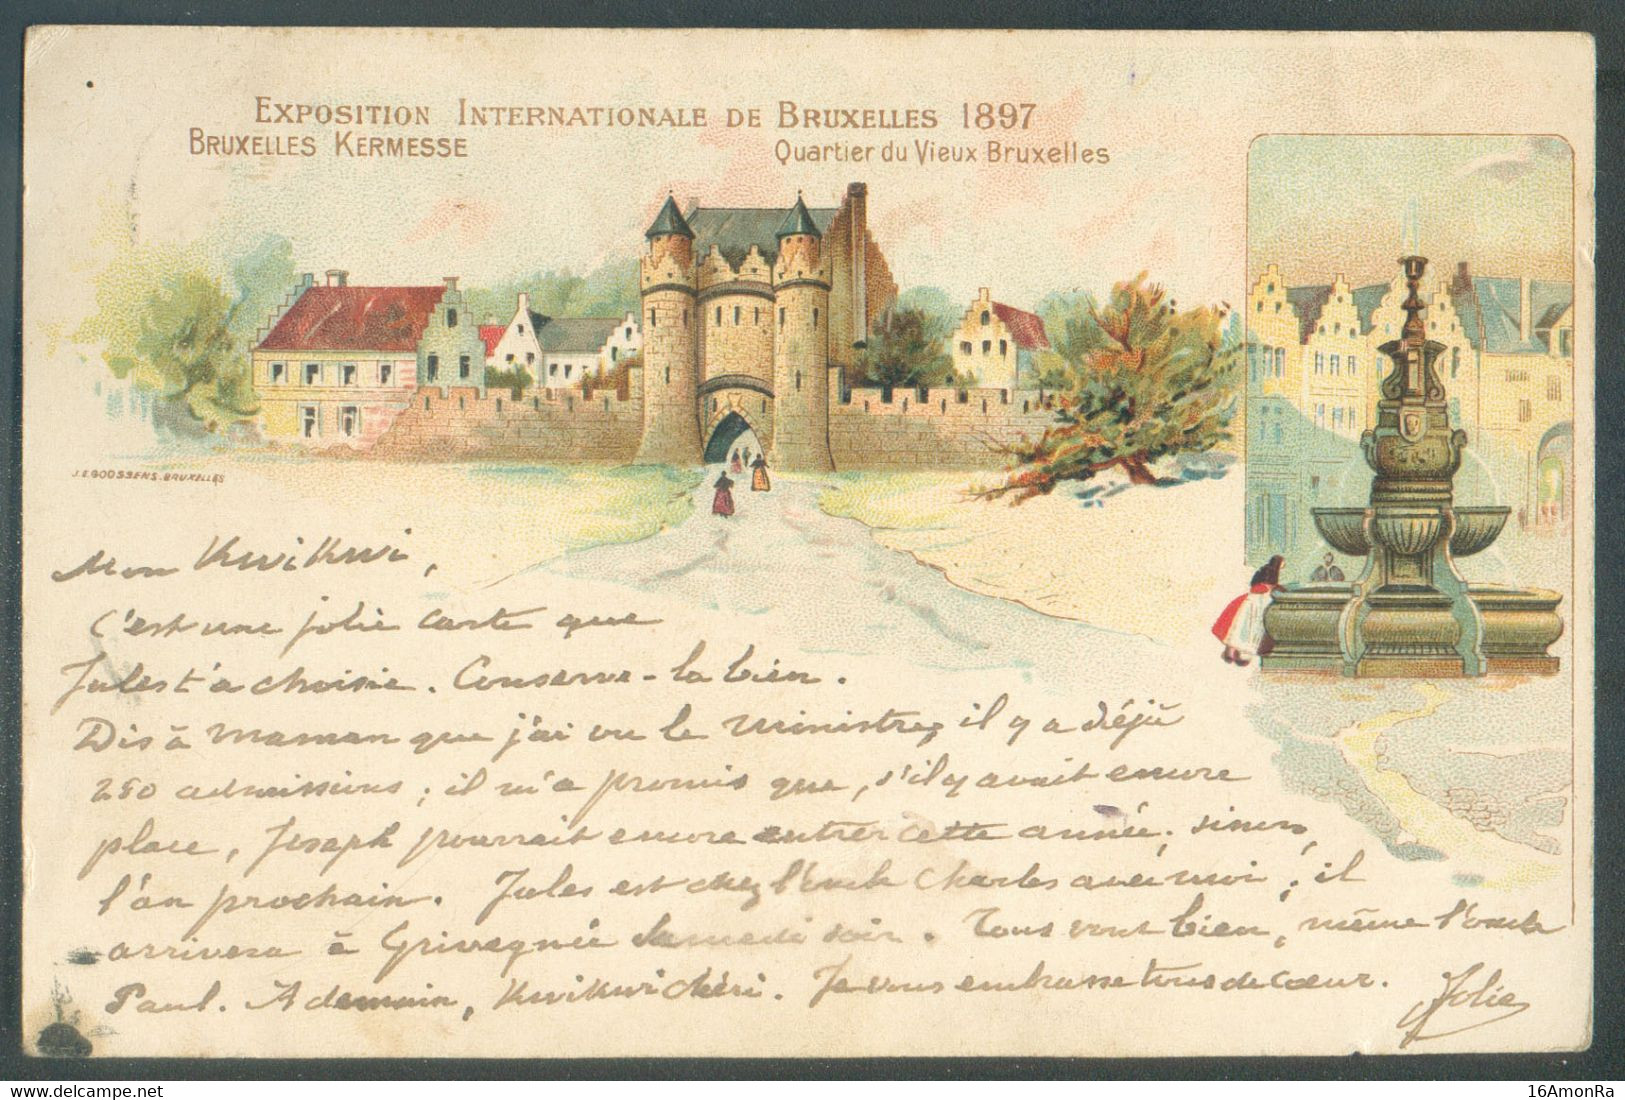 EXPOSITION INTERNATIONALE DE BRUXELLES 1897
BRUXELLES KERMESSE
Quartier du Vieux Bruxelles
J.E.GOOSSENS.BRUXELLES
Mon KwiKwi,
C'est une jolie carte que
Jules t'a choisie. Conserve-la bien.
Dis à maman que j'ai vu le Ministre, il y a déjà
250 admissions; il m'a promis que, s'il y avait encore
place, Joseph pourrait encore entrer cette année; sinon,
l'an prochain. Jules est chez l'oncle Charles avec moi; il
arrivera à Grivegnée samedi soir. Tous vont bien, même l'oncle
Paul. A demain, KwiKwi chéri. Je vous embrasse tous de cœur.
16AmonRa